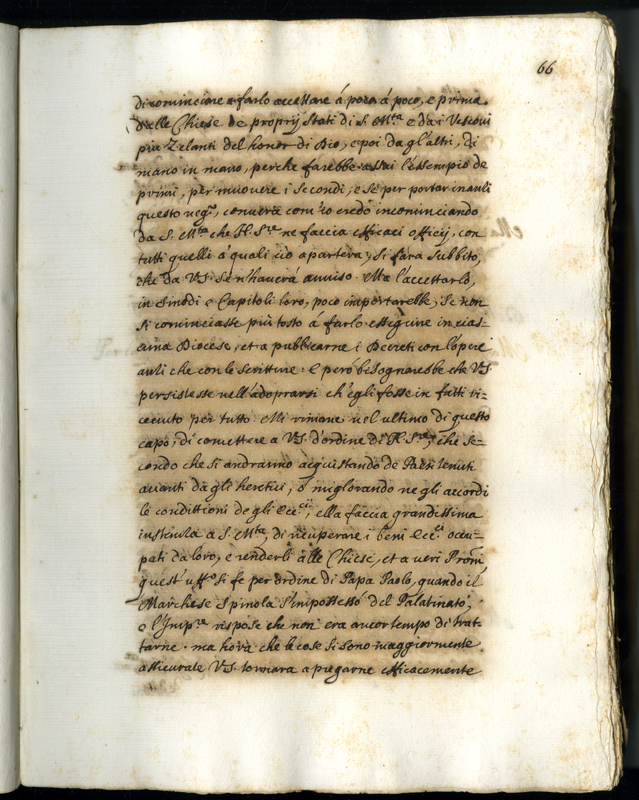 66
di cominciare a farlo accettare á poco á poco, e prima
dalle Chiese de proprij stati di S. M.ta e da i Vescovi
piu Zelanti del honor di Dio, e poi da gl'altri, di
mano in mano, perche farebbe assai l'essempio de
primi, per muovere i secondi, e se per portar inanti
questo neg.o, converrà com'io credo incominciando
da S. M.ta che N. S.re ne faccia efficaci officij, con
tutti quelli à quali ciò aparterrà, si farà subbito,
che da V.S. se n'haverà avviso. Ma l'accettarlo,
in Sinodi e Capitoli loro, poco importarebbe, se non
si cominciasse più tosto á farlo esseguire in cias=
cuna Diocese, et a publicarne i Decreti con l'opere
anti che con le scritture. E peró bisognarebbe che V.S.
persistesse nell'adoprarsi ch'egli fosse in fatti ri=
cevuto per tutto. Mi rimane nel ultimo di questo
capo, di comettere a V.S. d'ordine di N. S.re, che se=
condo che si andranno acquistando de Paesi tenuti
avanti da gli heretici, ò migliorando ne gli accordi
le conditioni de gli ecc.ci, ella faccia grandissima
instantia a S. M.ta, di ricuperare i beni ecc.ci occu=
pati da loro, e renderli alle Chiese, et a veri Proni,
quest'uff.o si fe per ordine di Papa Paolo, quando il
Marchese Spinola s'impossessò del Palatinato,
e l'Imp.re rispose che non era ancor tempo di trat
tarne. ma hora che le cose si sono maggiormente
assicurate V.S. tornarà a pregarne efficacemente